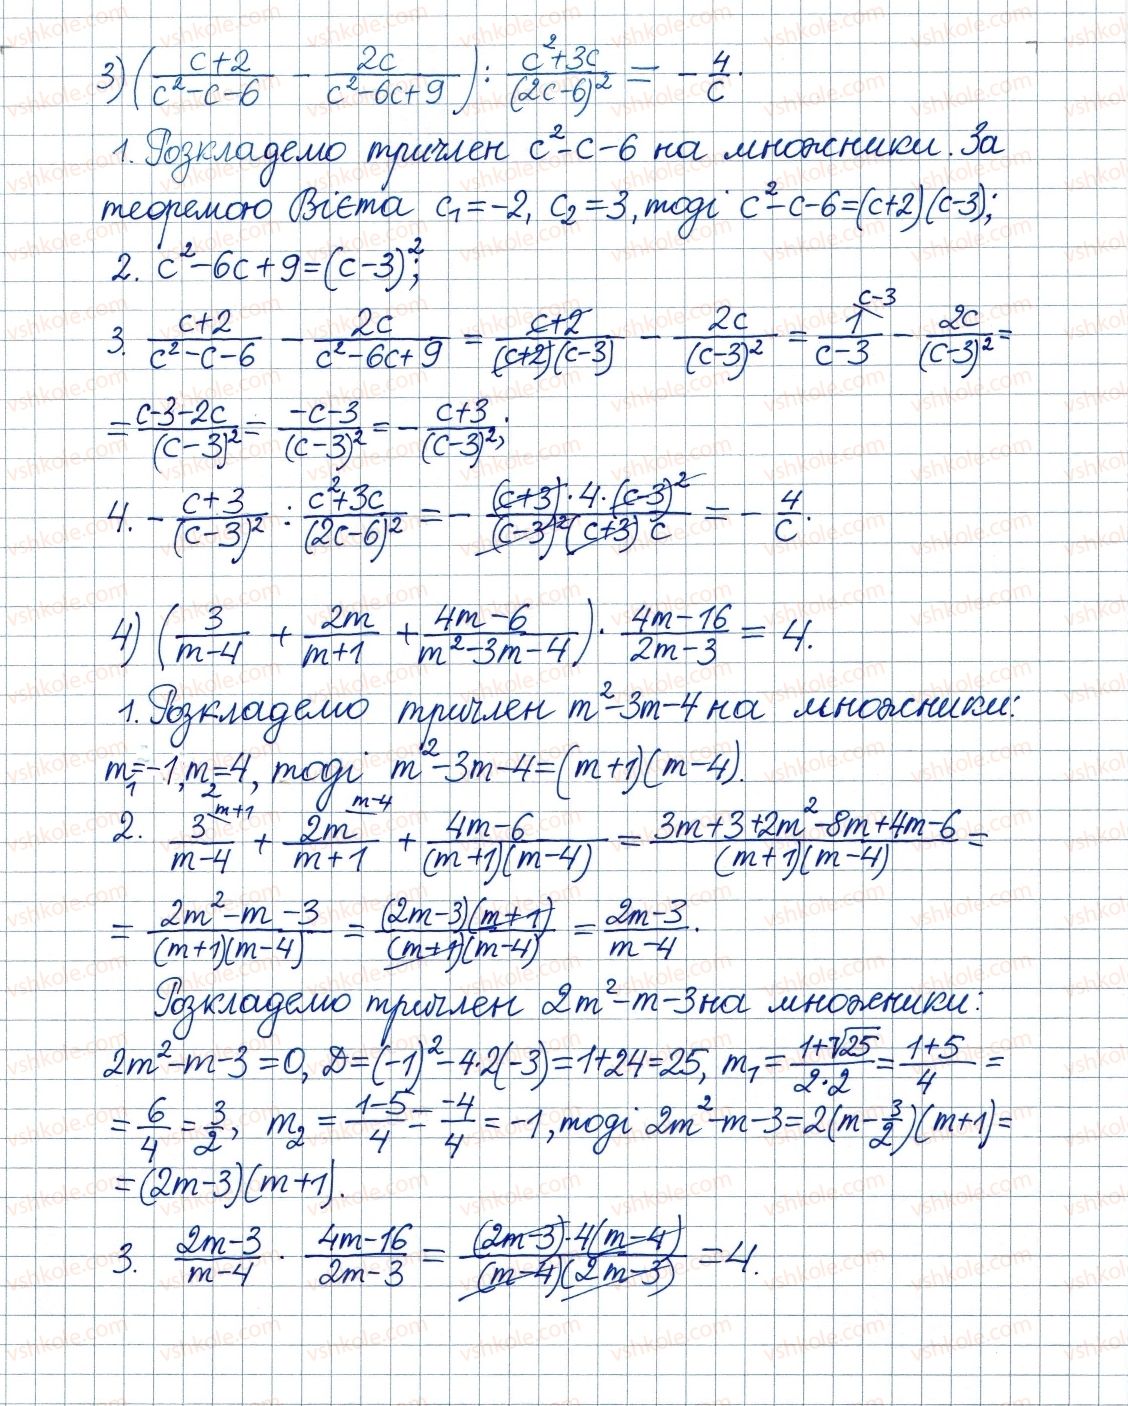 3) ((c+2)/(c²-c-6) - 2c/(c²-6c+9)) : (c²+3c)/(2c-6)² = -4/c.
1. Розкладемо тричлен c²-c-6 на множники. За
теоремою Вієта c₁=-2, c₂=3, тоді c²-c-6=(c+2)(c-3);
2. c²-6c+9=(c-3)²;
3. (c+2)/(c²-c-6) - 2c/(c²-6c+9) = (c+2)/((c+2)(c-3)) - 2c/(c-3)² = 1^(c-3)/(c-3) - 2c/(c-3)² =
= (c-3-2c)/(c-3)² = (-c-3)/(c-3)² = -(c+3)/(c-3)²;
4. -(c+3)/(c-3)² : (c²+3c)/(2c-6)² = -((c+3)·4·(c-3)²)/((c-3)²(c+3)c) = -4/c.
4) (3/(m-4) + 2m/(m+1) + (4m-6)/(m²-3m-4)) · (4m-16)/(2m-3) = 4.
1. Розкладемо тричлен m²-3m-4 на множники:
m₁=-1, m₂=4, тоді m²-3m-4=(m+1)(m-4).
2. 3^(m+1)/(m-4) + 2m^(m-4)/(m+1) + (4m-6)/((m+1)(m-4)) = (3m+3+2m²-8m+4m-6)/((m+1)(m-4)) =
= (2m²-m-3)/((m+1)(m-4)) = ((2m-3)(m+1))/((m+1)(m-4)) = (2m-3)/(m-4).
Розкладемо тричлен 2m²-m-3 на множники:
2m²-m-3=0, D=(-1)²-4·2(-3)=1+24=25, m₁=(1+√25)/(2·2)=(1+5)/4=
=6/4=3/2, m₂=(1-5)/4=-4/4=-1, тоді 2m²-m-3=2(m-3/2)(m+1)=
=(2m-3)(m+1).
3. (2m-3)/(m-4) · (4m-16)/(2m-3) = ((2m-3)·4(m-4))/((m-4)(2m-3)) = 4.